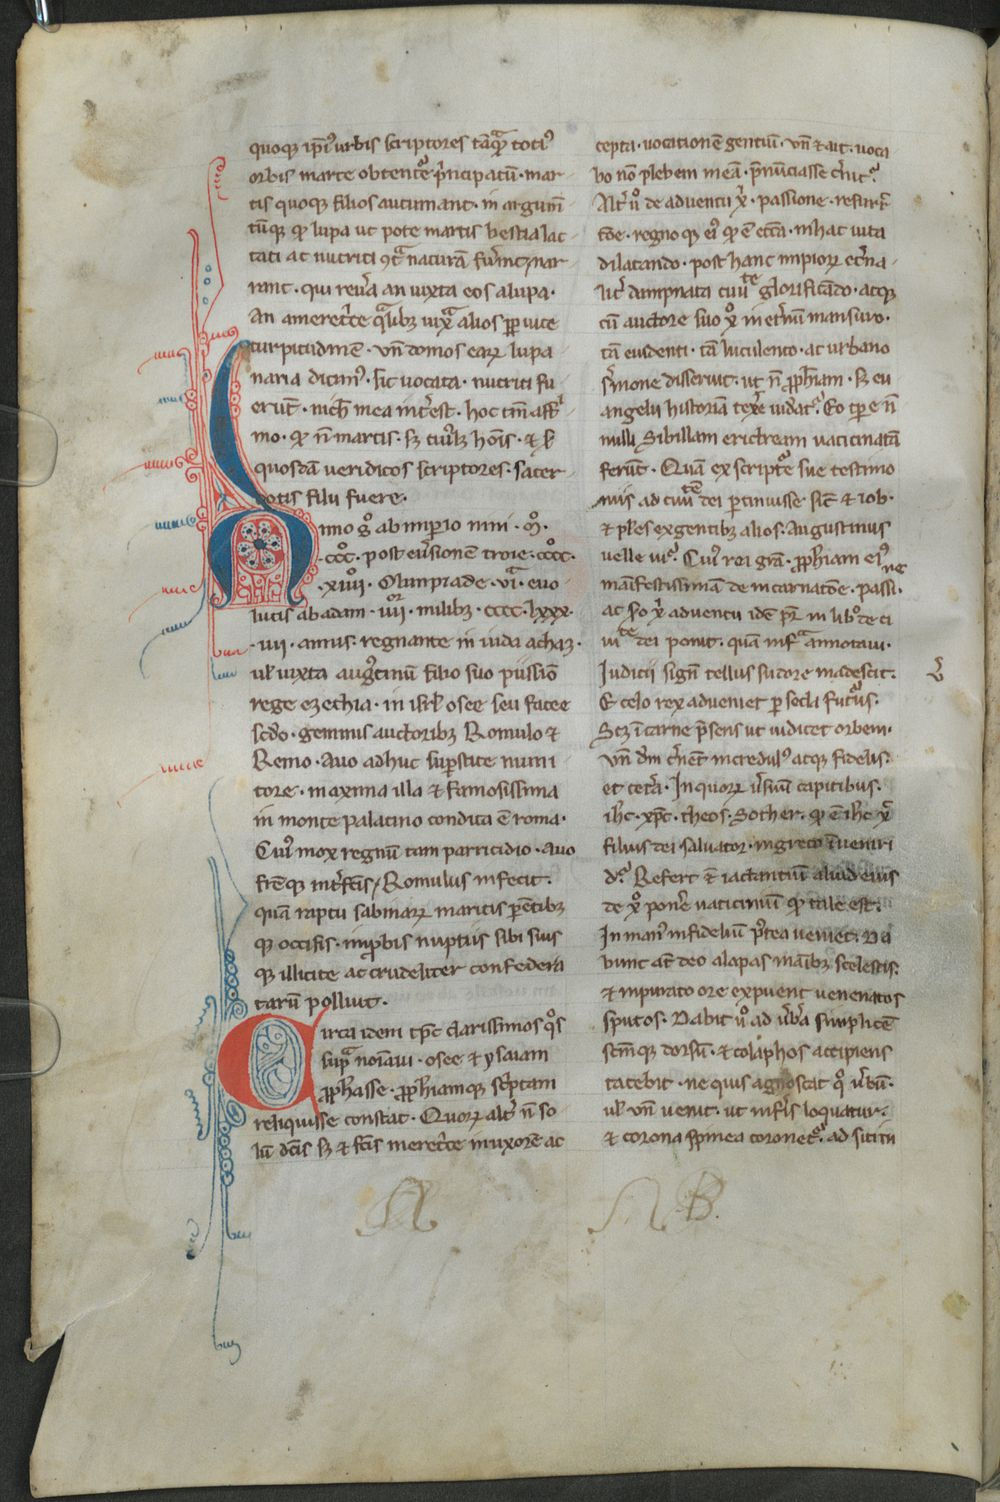 quoq; ip̄i' urbis scriptores tāq̄ȝ toti'
orbis marte obtentᵉ p̄ncipatū · mar-
tis quoq; filios autumant · in argum̄
tūq; qđ lupa ut pote martis bestia lac-
tati ac nutriti 9tᵃ naturā fuerint nar-
rant · qui reu̓a an iuxta eos a lupa ·
An ameret̓ce q̄lib; iuxᵃ alios ꝓp uite
turpitudinē · vn̄ domos eaꝝ lupa
naria dicim' · sic uocata · nutriti fu
erūt · nich̄ mea int̓est · hoc tm̄ affir
mo · qđ n̄ martis · sȝ ciuib; hōis · et s̄
quosdā ueridicos scriptores · sacer-
dotis filii fuere ·
Anno g° ab imp̄io nini · M ·
·ccc · post eu̓sionē troie · cccc ·
·xiiii · Olimpiade · vi · euo-
lutis ab adam · iiii · milib; · cccc · lxxx ·
· iii · annis · regnante in iuda achaz ·
ul̓ iuxta augᵗinū filio suo piissīo
rege ezechia · in isrl̓ osee seu facee
sc̄do · geminis auctorib; Romulo et
Remo · Auo adhuc sup̄stite numi
tore · maxima illa et famosissima
in monte palatino condita ē roma ·
Cui' mox regnū tam parricidio · Auo
frēq; int̓fc̄is / Romulus infecit ·
quā raptu sabinaꝝ maritis p̄entib;
q; occisis · imp̄bis nuptiis sibi suis
q; illicite ac crudeliter confedera
tarū polluit ·
Circa idem tp̄c clarissimos q°s
sup̄ᵃ noīaui · osee et ysaiam
ꝓph̄asse · ꝓph̄iamq; sc̓ptam
reliquisse constat · Quoꝝ alt̓ n̄ so-
lū dc̄is sȝ et fc̄is meret̓ce in uxorē ac
cepta · uocationē gentiū · vn̄ et ait · uoca
bo nō plebem meā · p̄nūciasse c̓nitᵘ ·
Alt̓ ů de aduentu x̓ · passione · resurr̄
c̄oe · regnoq; ei' qđ ē ecc̄a · in hac uita
dilatando · post hanc impioꝝ et̓na-
lit̓ dampnata ciuiᵗᵉ glorificādo · atq;
cū auctore suo x̊ in et̓nū mansuro ·
tā euidenti · tā luculento · ac urbano
s̓mone disseruit · ut n̄ ꝓph̄iam · sȝ eu
angelii historiā texe uidatᵘ · Eo tp̄e n̄
nulli Sibillam erictream uaticinatā
ferūt · Quā ex scriptᵉ sue testimo
niis ad ciuiᵗᵉ dei p̄tinuisse sic̄ et iob ·
et pl̄es ex gentib; alios · Augustinus
uelle uiᵗ · Cui' rei gr̄a · ꝓph̄iam ei'
māifestissimā de incarnatōe · passi-
ne
ac s̊o x̓ aduentu idē p̄r in lib° de ci
uiᵗᵉ dei ponit · quā infᵃ annotaui ·
Judicii sign̄ tellus sudore madescit ·
E celo rex adueniet p̱ secla futᵘrus ·
Scȝ ī carne p̄sens ut iudicet orbem ·
vn̄ dm̄ c̓nēt incredul' atq; fidelis ·
et cet̓a · In quoꝝ u̓suū capitibus ·
ih̄c · xp̄c · theos · Sother · qđ ē ih̄c x̄
filius dei saluator · in greco īueniri
d'ᵗ · Refert et̄ lactantiū aliud eius
de x̊ pone uaticiniū qđ tale est ·
In man' infideliū p̄tea ueniet · Da
bunt at̄ deo alapas māib; scelestis ·
et inpurato ore expuent uenenatos
sputos · Dabit ů ad u̓b̓a simplicē
sc̄mq; dorsū · et colaphos accipiens
tacebit · ne quis agnoscat q° u̓bū ·
ul̓ vn̄ uenit · ut inf̓is loquatur ·
et corona spinea coronetᵘ · ad sitim
A N B.